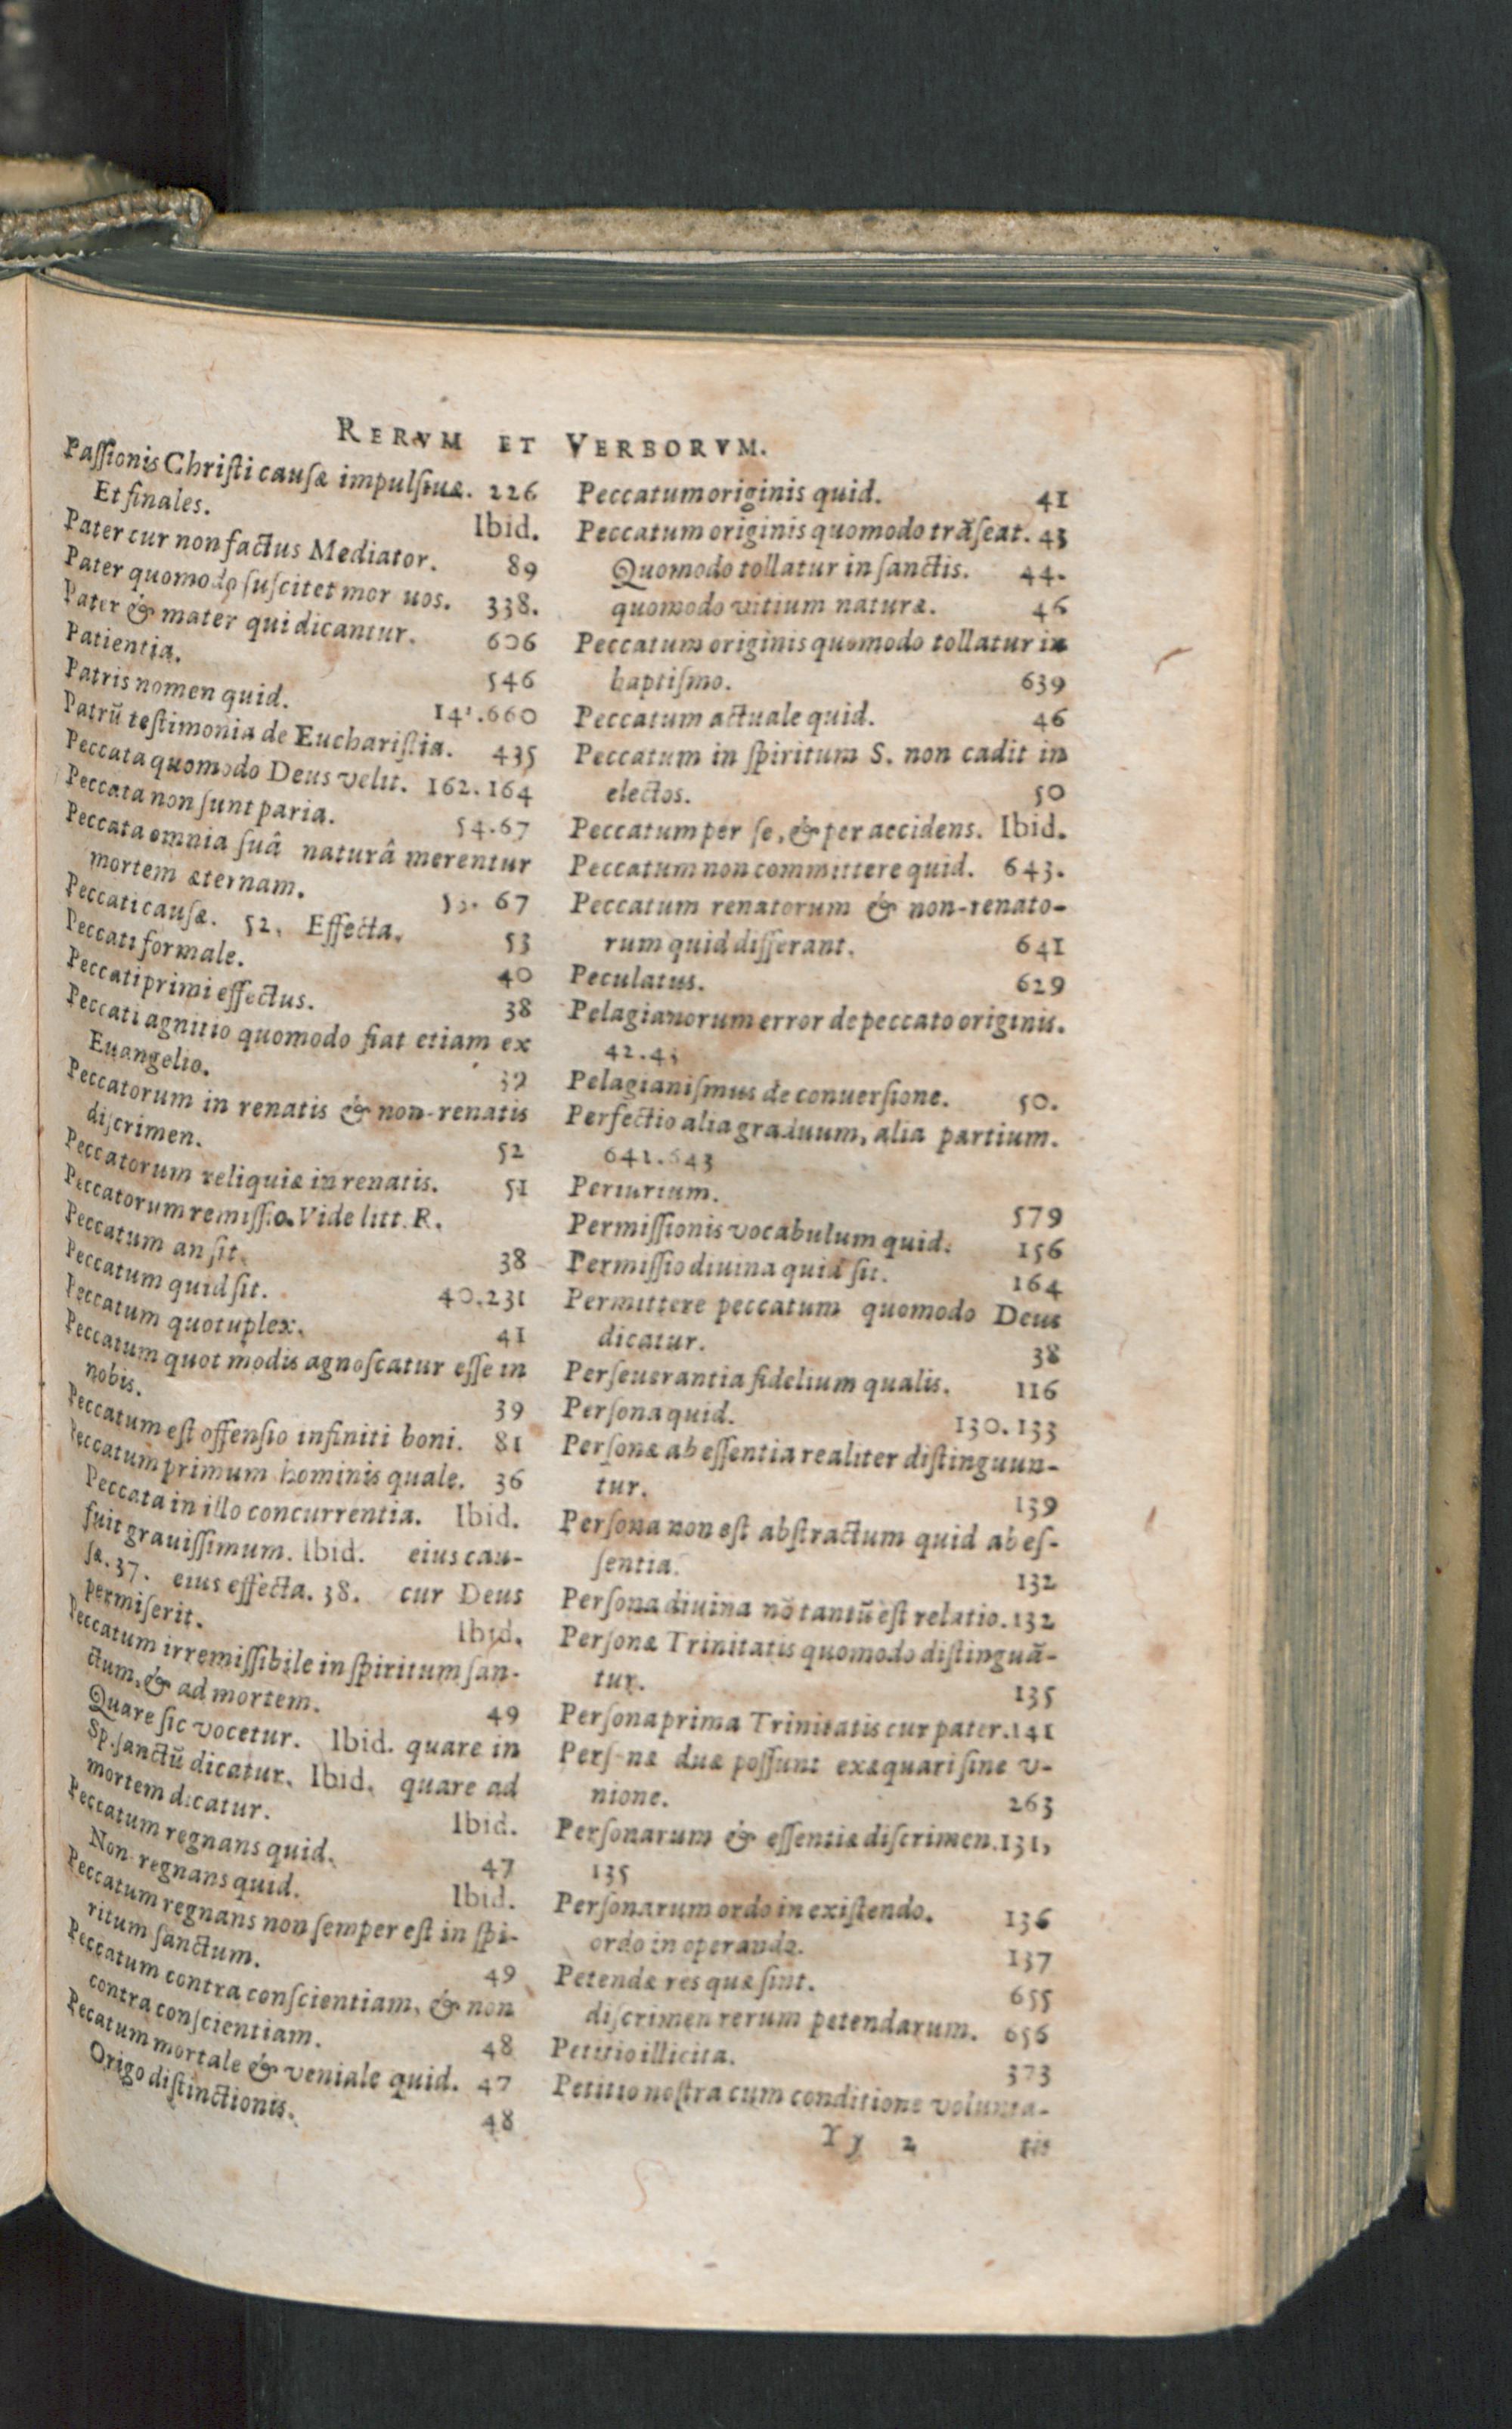 RERVM ET VERBORVM.
Paſſionis Chriſti cauſæ impulſiuæ. 226
Et finales. Ibid.
Pater cur non factus Mediator. 89
Pater quomodo ſuſcitet mor uos. 338.
Pater & mater qui dicantur. 606
Patientia. 546
Patris nomen quid. 141.660
Patrũ teſtimonia de Euchariſtia. 435
Peccata quomodo Deus velit. 162.164
Peccata non ſunt paria. 54.67
Peccata omnia ſuâ naturâ merentur
mortem æternam. 67
Peccati cauſæ. 52. Effecta. 53
Peccati formale. 40
Peccati primi effectus. 38
Peccati agnitio quomodo fiat etiam ex
Euangelio. 39
Peccatorum in renatis & non-renatis
diſcrimen. 52
Peccatorum reliquiæ in renatis. 51
Peccatorum remiſſio. Vide litt. R.
Peccatum an ſit. 38
Peccatum quid ſit. 40.231
Peccatum quotuplex. 41
Peccatum quot modis agnoſcatur eſſe in
nobis. 39
Peccatum eſt offenſio infiniti boni. 81
Peccatum primum hominis quale. 36
Peccata in illo concurrentia. Ibid.
fuit grauiſſimum. Ibid. eius cau-
ſæ. 37. eius effecta. 38. cur Deus
permiſerit. Ibid.
Peccatum irremiſſibile in ſpiritum ſan-
ctum, & ad mortem. 49
Quare ſic vocetur. Ibid. quare in
Sp. ſanctũ dicatur. Ibid. quare ad
mortem dicatur. Ibid.
Peccatum regnans quid. 47
Non regnans quid. Ibid.
Peccatum regnans non ſemper eſt in ſpi-
ritum ſanctum. 49
Peccatum contra conſcientiam, & non
contra conſcientiam. 48
Pecatum mortale & veniale quid. 47
Origo diſtinctionis. 48
Peccatum originis quid. 41
Peccatum originis quomodo trãſeat. 43
Quomodo tollatur in ſanctis. 44.
quomodo vitium naturæ. 46
Peccatum originis quomodo tollatur in
baptiſmo. 639
Peccatum actuale quid. 46
Peccatum in ſpiritum S. non cadit in
electos. 50
Peccatum per ſe, & per accidens. Ibid.
Peccatum non committere quid. 643.
Peccatum renatorum & non-renato-
rum quid differant. 641
Peculatus. 629
Pelagianorum error de peccato originis.
42.43
Pelagianiſmus de conuerſione. 50.
Perfectio alia graduum, alia partium.
641.643
Periurium. 579
Permiſſionis vocabulum quid. 156
Permiſſio diuina quid ſit. 164
Permittere peccatum quomodo Deus
dicatur. 38
Perſeuerantia fidelium qualis. 116
Perſona quid. 130.133
Perſonæ ab eſſentia realiter diſtinguun-
tur. 139
Perſona non eſt abſtractum quid ab eſ-
ſentia. 132
Perſona diuina nõ tantũ eſt relatio. 132
Perſonæ Trinitatis quomodo diſtinguã-
tur. 135
Perſona prima Trinitatis cur pater. 141
Perſonæ duæ poſſunt exæquari ſine v-
nione. 263
Perſonarum & eſſentiæ diſcrimen. 131,
135
Perſonarum ordo in exiſtendo. 136
ordo in operando. 137
Petendæ res quæ ſint. 655
diſcrimen rerum petendarum. 656
Petitio illicita. 373
Petitio noſtra cum conditione volunta-
Yy 2 tis